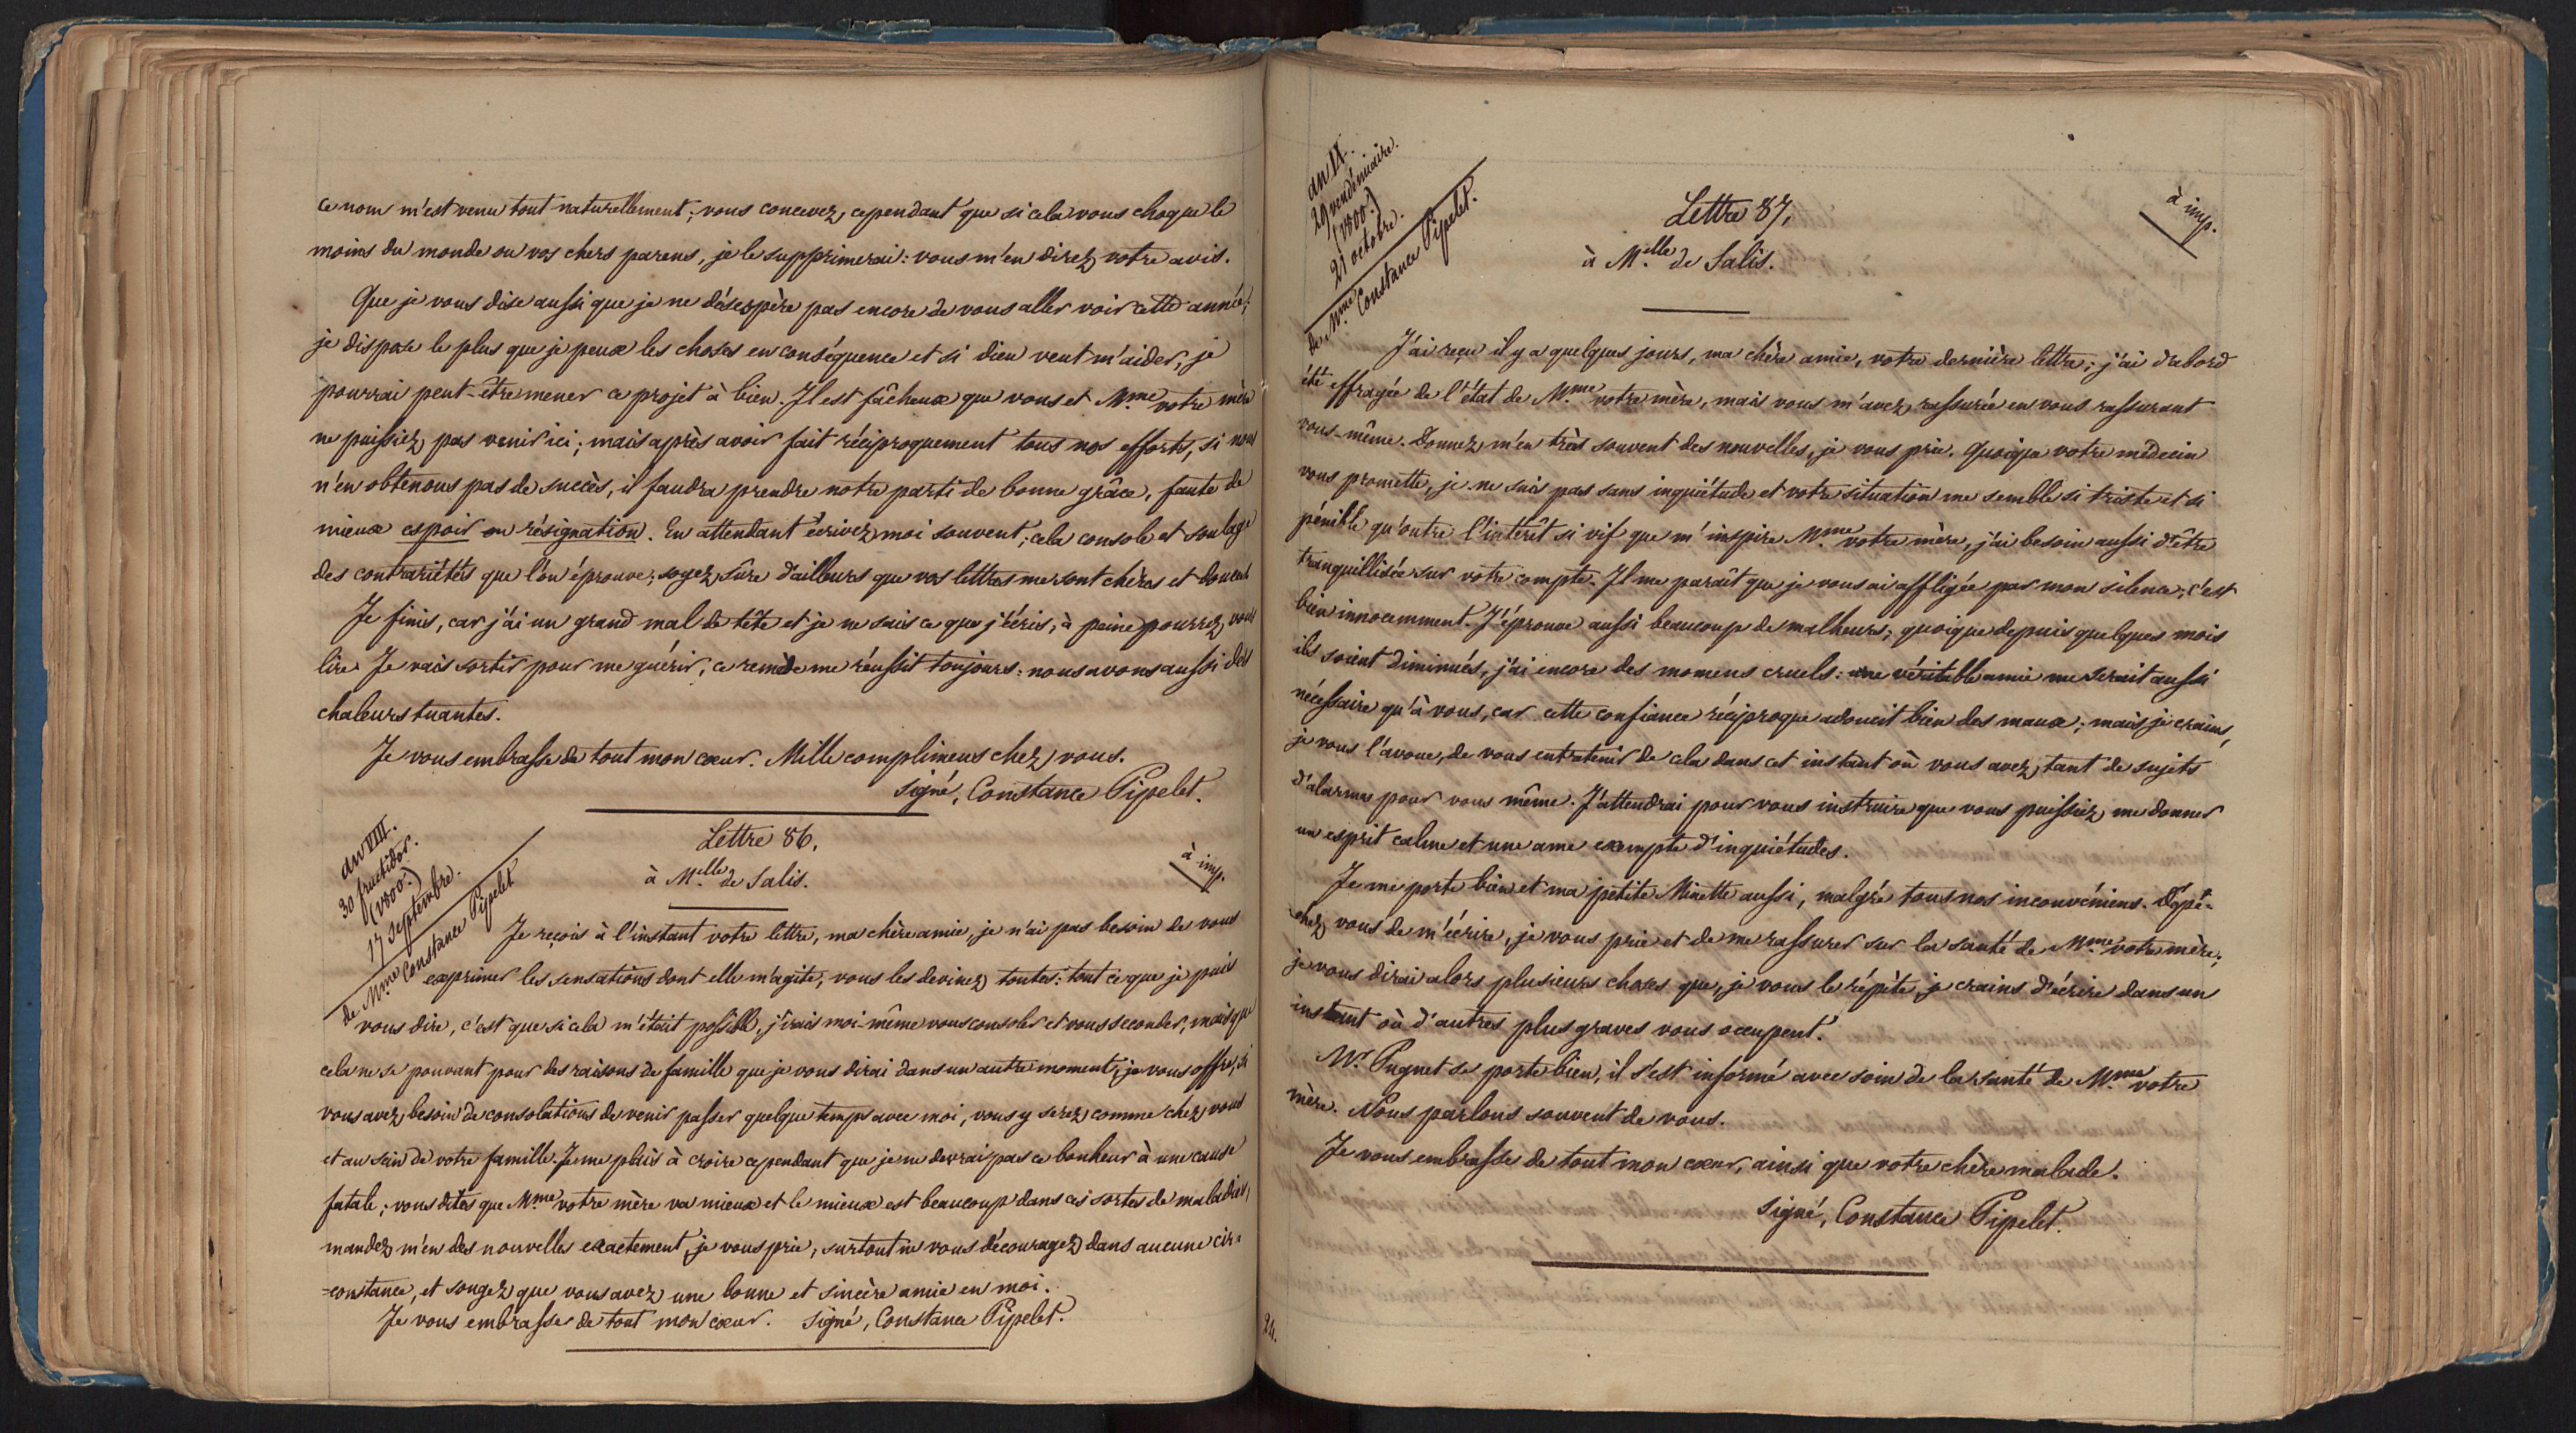 ce nom m'est venu tout naturellement; vous concevez cependant que si cela vous choque le
moins du monde ou vos chers parens, je le supprimerai: vous m'en direz votre avis.
Que je vous dise aussi que je ne désespère pas encore de vous aller voir cette année;
je dispose le plus que je peux les choses en conséquence et si dieu veut m'aider, je
pourrai peut-être mener ce projet à bien. Il est fâcheux que vous et M.me votre mère
ne puissiez pas venir ici; mais après avoir fait réciproquement tous nos efforts, si nous
n'en obtenons pas de succès, il faudra prendre notre parti de bonne grâce, faute de
mieux espoir ou résignation. En attendant écrivez moi souvent; cela console et soulage
des contrariétés que l'on éprouve; soyez sûre d'ailleurs que vos lettres me sont chères et douces
Je finis, car j'ai un grand mal de tête et je ne sais ce que j'écris, à peine pourrez vous
lire. Je vais sortir pour me guérir, ce remède me réussit toujours: nous avons aussi des
chaleurs tuantes.
Je vous embrasse de tout mon cœur. Mille complimens chez vous.
signé, Constance Pipelet.
an VIII.
30 fructidor.
(1800.)
17 septembre.
de M.me Constance Pipelet
Lettre 86.
à M.elle de Salis.
à imp.
Je reçois à l'instant votre lettre, ma chère amie, je n'ai pas besoin de vous
exprimer les sensations dont elle m'agite, vous les devinez toutes: tout ce que je puis
vous dire, c'est que si cela m'était possible, j'irais moi-même vous consoler et vous seconder, mais que
cela ne se pouvant pour des raisons de famille que je vous dirai dans un autre moment, je vous offre, si
vous avez besoin de consolations de venir passer quelque temps avec moi, vous y serez comme chez vous
et au sein de votre famille. Je me plais à croire cependant que je ne devrai pas ce bonheur à une cause
fatale; vous dites que M.me votre mère va mieux et le mieux est beaucoup dans ces sortes de maladies;
mandez m'en des nouvelles exactement, je vous prie, surtout ne vous découragez dans aucune cir=
=constance, et songez que vous avez une bonne et sincère amie en moi.
Je vous embrasse de tout mon cœur. signé, Constance Pipelet.
an IX.
29 vendémiaire.
(1800.)
21 octobre.
de M.me Constance Pipelet.
Lettre 87.
à M.elle de Salis.
à imp.
J'ai reçu il y a quelques jours, ma chère amie, votre dernière lettre; j'ai d'abord
été effrayée de l'état de M.me votre mère, mais vous m'avez rassurée en vous rassurant
vous-même. Donnez m'en très souvent des nouvelles, je vous prie. Quoique votre médecin
vous promette, je ne suis pas sans inquiétude et votre situation me semble si triste et si
pénible qu'outre l'intérêt si vif que m'inspire M.me votre mère, j'ai besoin aussi d'être
tranquillisée sur votre compte. Il me paraît que je vous ai affligée par mon silence; c'est
bien innocemment. J'éprouve aussi beaucoup de malheurs; quoique depuis quelques mois
ils soient diminués, j'ai encore des momens cruels: une véritable amie me serait aussi
nécessaire qu'à vous, car cette confiance réciproque adoucit bien des maux; mais je crains,
je vous l'avoue, de vous entretenir de cela dans cet instant où vous avez tant de sujets
d'alarmes pour vous même. J'attendrai pour vous instruire que vous puissiez me donner
un esprit calme et une ame exempte d'inquiétudes.
Je me porte bien et ma petite Minette aussi, malgré tous nos inconvéniens. Dépê-
chez vous de m'écrire, je vous prie et de me rassurer sur la santé de M.me votre mère;
je vous dirai alors plusieurs choses que, je vous le répète, je crains d'écrire dans un
instant où d'autres plus graves vous occupent.
M.r Pugnet se porte bien, il s'est informé avec soin de la santé de M.me votre
mère. Nous parlons souvent de vous.
Je vous embrasse de tout mon cœur, ainsi que votre chère malade.
signé, Constance Pipelet.
24.